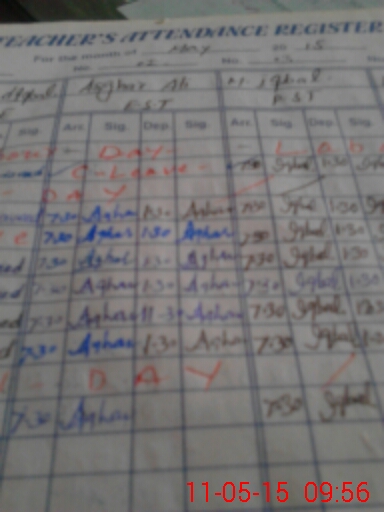 TEACHER'S ATTENDANCE REGISTER
For the month of May 20 15
No. 02 No. 03
Asghar Ali M. Iqbal
EST PST
Sig. Arr. Sig. Dep. Sig. Arr. Sig. Dep. Sig.
- DAY - - L a b
C-Leave - 7:30 Iqbal 1:30
- D A Y
7:30 Asghar 1:30 Asghar 7:30 Iqbal 1:30
7:30 Asghar 1:30 Asghar 7:30 Iqbal 1:30
7:30 Asghar 1:30 Asghar 7:30 Iqbal 1:30
7:30 Asghar 1:30 Asghar 7:30 Iqbal 1:30
7:30 Asghar 11-30 Asghar 7:30 Iqbal
7:30 Asghar 1:30 Asghar 7:30 Iqbal
- D A Y
7:30 Asghar 7:30 Iqbal
11-05-15 09:56